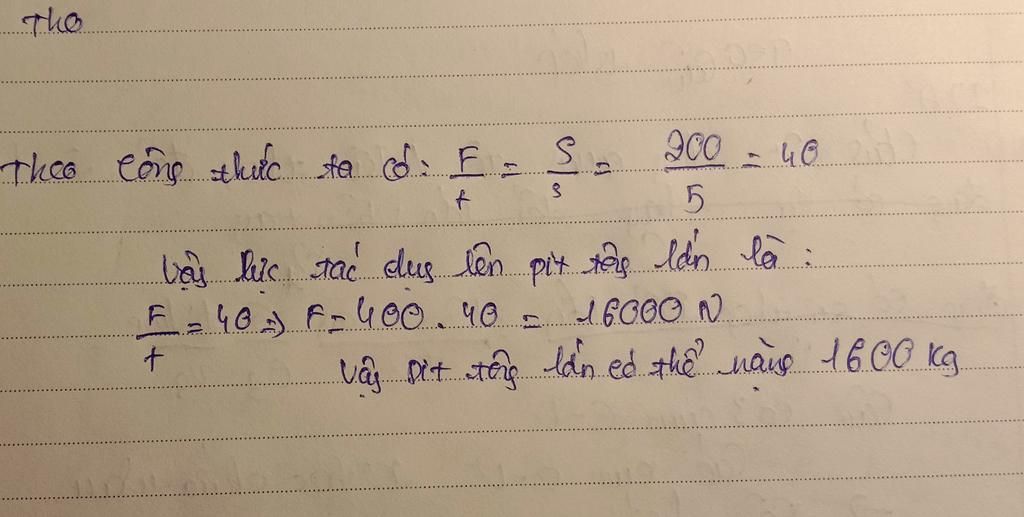 Theo
Theo công thức ta có: F/f = S/s = 200/5 = 40
Vậy lực tác dụng lên pit tông lớn là:
F/f = 40 => F = 400 . 40 = 16000 N
Vậy pit tông lớn có thể nâng 1600 kg